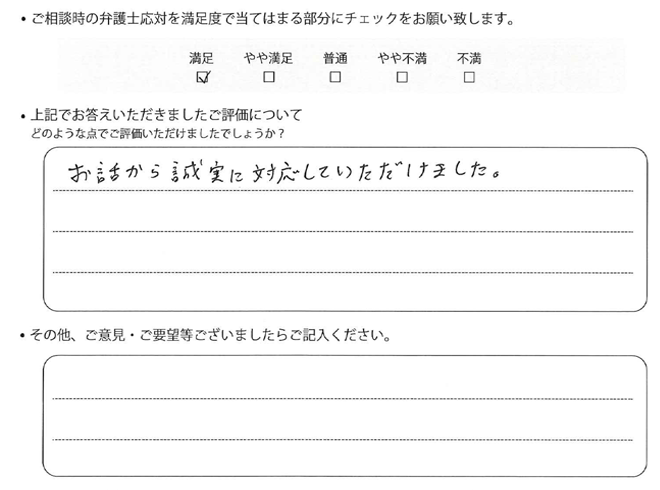 • ご相談時の弁護士応対を満足度で当てはまる部分にチェックをお願い致します。
満足 やや満足 普通 やや不満 不満
☑ ☐ ☐ ☐ ☐
• 上記でお答えいただきましたご評価について
どのような点でご評価いただけましたでしょうか？
お話から誠実に対応していただけました。
• その他、ご意見・ご要望等ございましたらご記入ください。